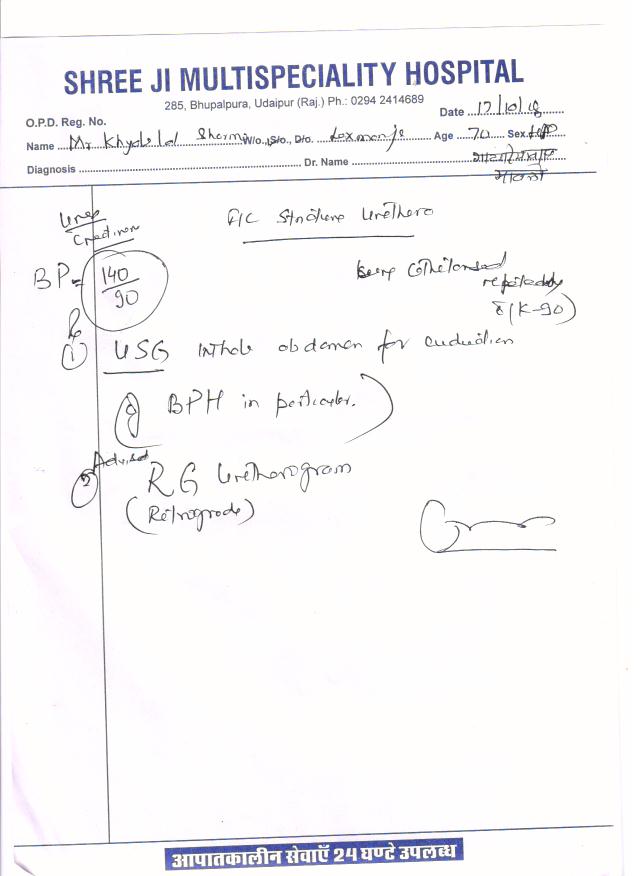 SHREE JI MULTISPECIALITY HOSPITAL
285, Bhupalpura, Udaipur (Raj.) Ph.: 0294 2414689
O.P.D. Reg. No. Date 17/10/18
Name Mr Khyali lal Sharma W/o., S/o., D/o. Laxman ji Age 70 Sex
Diagnosis Dr. Name
मावली
Urea
Creatinine
F/C Stricture Urethera
BP = 140/90
being Catheterised
repeatedly
(K-90)
Rx
① USG whole abdomen for evaluation
BPH in particular.)
Advised
② RG Uretherogram
(Retrograde)
आपातकालीन सेवाएँ 24 घण्टे उपलब्ध